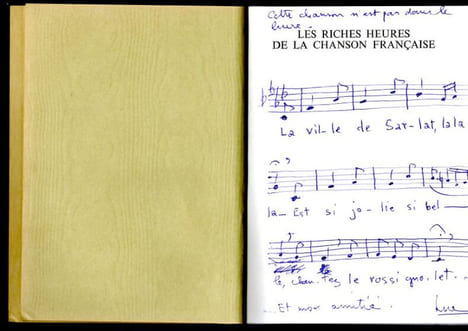 Cette chanson n'est pas dans le
livre.
LES RICHES HEURES
DE LA CHANSON FRANÇAISE
La vil-le de Sar-lat, la la
la_ Est si jo-lie si bel
le, chan-tez le rossignolet..
Et mon amitié.